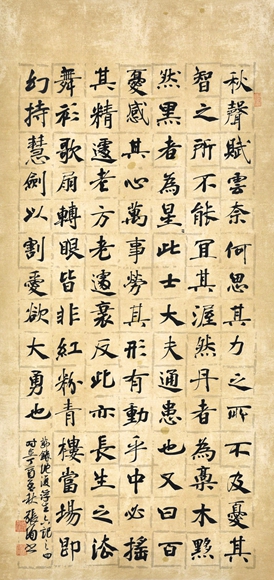 秋聲賦雲奈何思其力之所不及憂其
智之所不能宜其渥然丹者為槀木黟
然黑者為星此士大夫通患也又曰百
憂感其心萬事勞其形有動乎中必搖
其精遽老方老遽衰反此亦長生之法
舞衫歌扇轉眼皆非紅粉青樓當場即
幻持慧劍以割愛欲大勇也
六記之句
丁酉金秋張